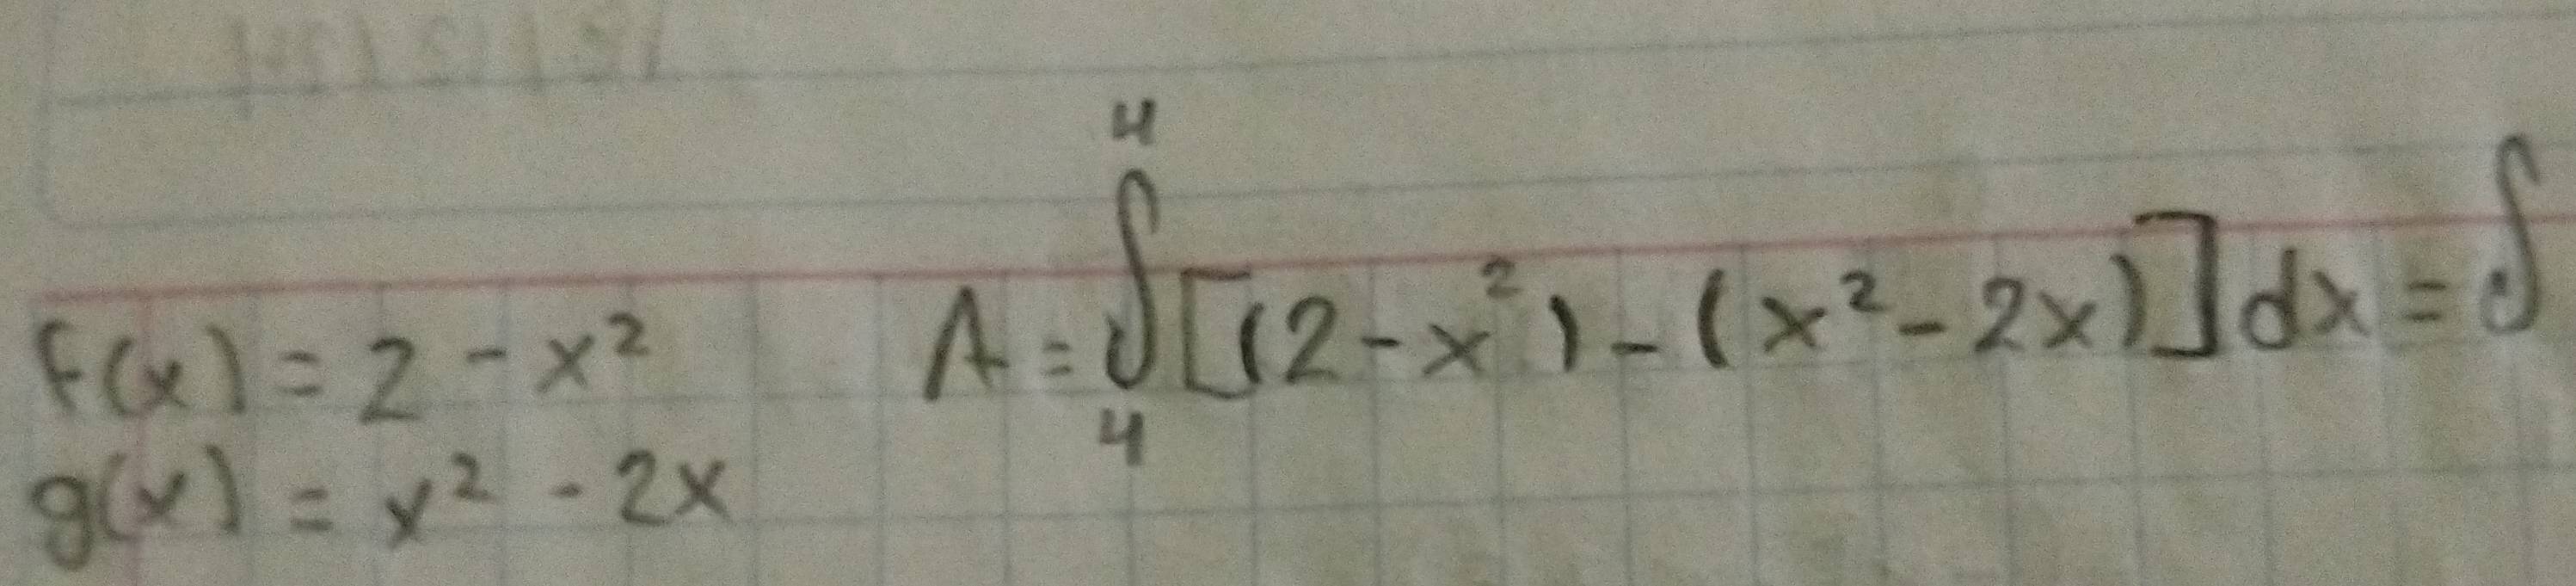 f(x) = 2 - x²
g(x) = x² - 2x
A = ∫₄⁴ [(2 - x²) - (x² - 2x)] dx = ∫